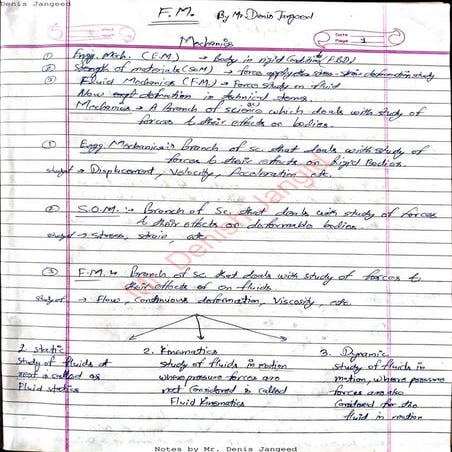 Denis Jangeed
F.M. By Mr. Denis Jangeed
Date
Page 1
Mechanics
① Engg. Mech. (E.M.) → Body in rigid Condition (FBD)
② Strength of materials (S.M) → Force apply stress - strain deformation study
③ Fluid Mechanics (F.M) → Force study on fluid
Now defination in technical terms.
Mechanics → A Branch of science (sc) which deals with study of
forces & their effects on bodies.
① Engg. Mechanics :- Branch of sc that deals with study of
forces & their effects on Rigid Bodies.
study of → Displacement, Velocity, Acceleration etc.
② S.O.M. :- Branch of sc that deals with study of forces
& their effects on deformable bodies.
study of → stress, strain, etc
③ F.M. :- Branch of sc that deals with study of forces &
their effects of on fluids.
study of → Flow, continuous deformation, Viscosity, etc.
1. static 2. Kinematics 3. Dynamic
study of fluids at study of fluids in motion study of fluids in
rest is called as where pressure forces are motion, where pressure
Fluid statics not Considered is called forces are also
Fluid Kinematics Considered for the
fluid in motion
Denis Jangeed
Notes by Mr. Denis Jangeed